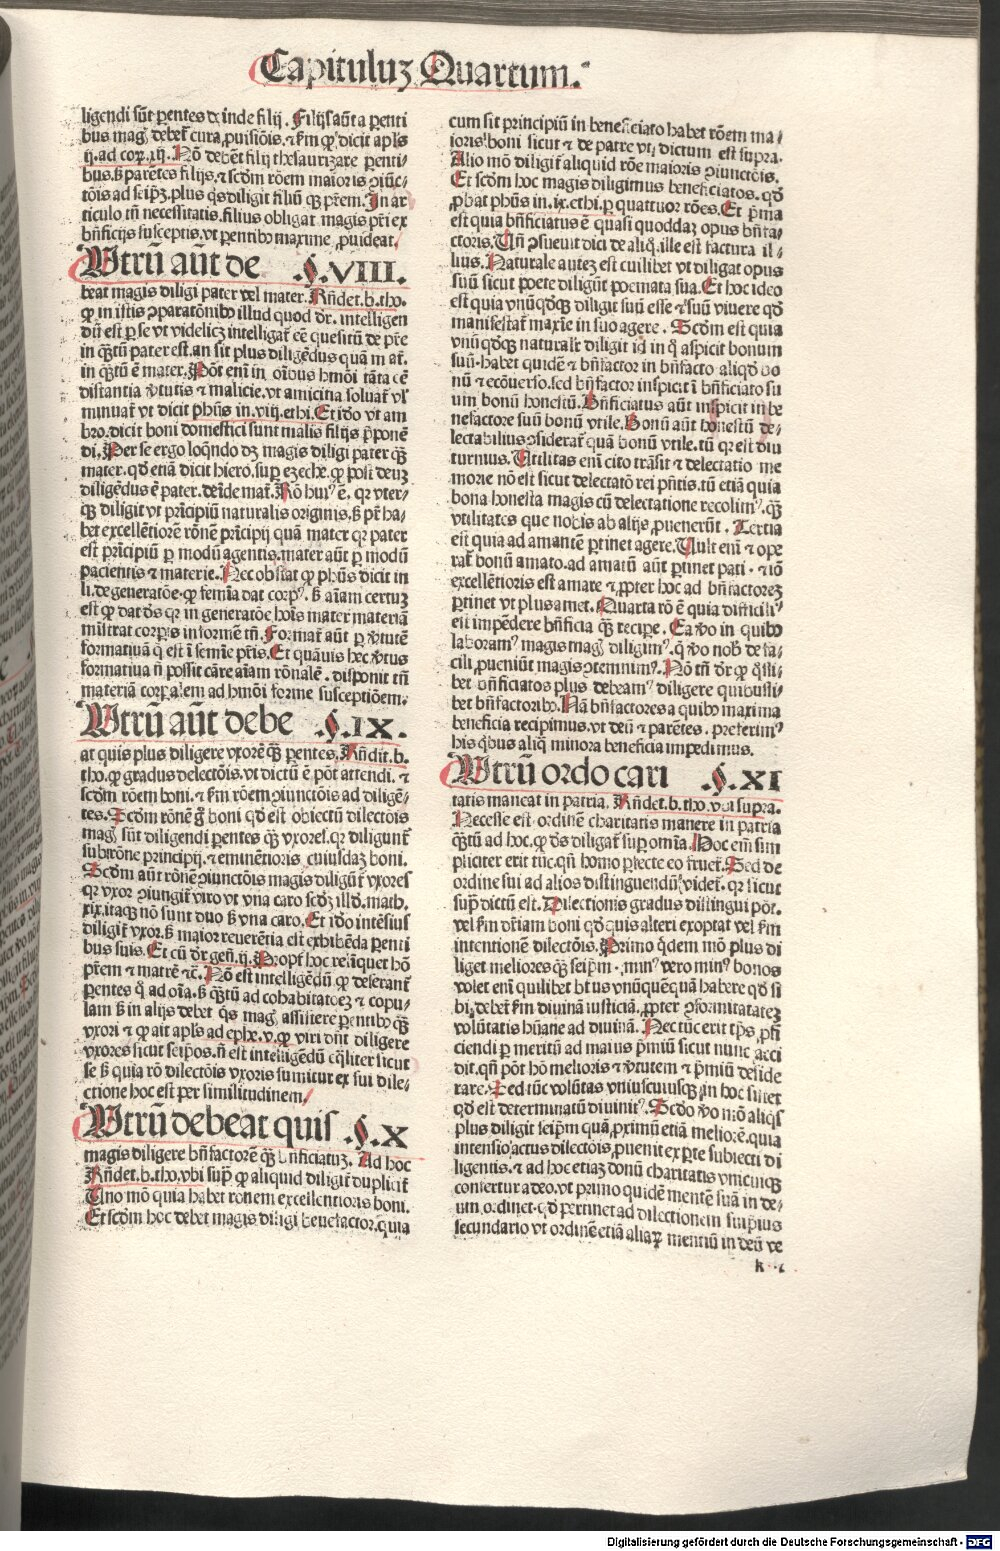 Capituluz Quartum.
ligendi sūt ꝑentes deinde filij. Filijs aūt a ꝑenti
bus mag debet cura ꝓuisiōis. ⁊ km̄ qꝫ dicit apls
ij. ad cor. xij. Nō debēt filij thesaurizare ꝑenti-
bus. ꝫ parētes filijs. ⁊ scd̄m rōem maioris ꝯiūc-
tōis ad seip̄z. plus qs diligit filiū qꝫ pr̄em. In ar
ticulo tn̄ necessitatis. filius obligat magis pr̄i ex
bn̄ficijs susceptis. vt ꝑentibꝰ maxime ꝓuideat.
Utrū aūt de .§.VIII.
beat magis diligi pater vel mater. Rn̄det. b. tho.
ꝙ in istis ꝯparatōnibꝰ illud quod dr̄. intelligen
dū est ꝑ se vt videlicꝫ intelligat̄ eē quesitū de pr̄e
in qꝫtū pater est. an sit plus diligēdus quā mat̄.
in qꝫtū ē mater. Pōt enī in oībus hmōi tāta eē
distantia v̄tutis ⁊ malicie. vt amicitia soluat̄ vl'
minuat̄ vt dicit phūs in. viij. ethi. Et iō vt am
bro. dicit boni domestici sunt malis filijs p̄ponē
di. Per se ergo loqndo dꝫ magis diligi pater qꝫ
mater. qd̄ etiā dicit hiero. suꝑ ezeche. ꝙ post deuz
diligēdus ē pater. deīde mat̄. Rō huiꝰ ē. qr vter-
qꝫ diligit vt prīcipiū naturalis originis. ꝫ pr̄ ha-
bet excellētiorē rōnē prīcipij quā mater qr pater
est prīcipiū ꝑ modū agentis. mater aūt ꝑ modū
pacientis ⁊ materie. Nec obstat ꝙ phūs dicit in
li. de generatōe. ꝙ femīa dat corpꝰ. ꝫ aīam certuz
est ꝙ dat ds̄ qr in generatōe hoīs mater materiā
mīstrat corpis informē tn̄. Format̄ aūt ꝑ v̄tutē
formatiuā q̄ est ī semīe pr̄is. Et quāuis hec v̄tus
formatiua n̄ possit cāre aīam rōnalē. disponit tn̄
materiā corꝑalem ad hmōi forme susceptiōem.
Utrū aūt debe .§.IX.
at quis plus diligere vxorē qꝫ ꝑentes. Rn̄dit. b.
tho. ꝙ gradus delectōis. vt dictū ē. pōt attendi. ⁊
scd̄m rōem boni. ⁊ km̄ rōem ꝯiunctōis ad diligē-
tes. Scd̄m rōnē g̊ boni qd̄ est obiectū dilectōis
mag sūt diligendi ꝑentes qꝫ vxores. qr diligunt̄
sub rōne principij. ⁊ eminētioris cuiusdaz boni.
Scd̄m aūt rōnē ꝯiunctōis magis diligūt̄ vxores
qr vxor ꝯiungit̄ viro vt vna caro scd̄z illd̄. math.
xix. itaqꝫ nō sunt duo ꝫ vna caro. Et iō intēsius
diligit̄ vxor. ꝫ maior reuerētia est exhibēda ꝑenti
bus suis. Et cū dr̄ gen̄. ij. Propt̄ hoc relīquet hō
pr̄em ⁊ matrē ⁊c̄. Nō est intelligēdū ꝙ deserant̄
ꝑentes q̄ ad oīa. ꝫ qꝫtū ad cohabitatōez ⁊ copu-
lam ꝫ in alijs debet qs mag assistere ꝑentibꝰ qꝫ
vxori ⁊ ꝙ ait apls ad ephe. v. ꝙ viri dn̄t diligere
vxores sicut seip̄os. n̄ est intelligēdū eq̄liter sicut
se ꝫ quia rō dilectōis vxoris sumitur ex sui dile-
ctione hoc est per similitudinem.
Utrū debeat quis .§.X
magis diligere bn̄factorē qꝫ bn̄ficiatuz. Ad hoc
Rn̄det. b. tho. vbi sup̄ ꝙ aliquid diligit̄ duplicit̄
Uno mō quia habet rōnem excellentioris boni.
Et scd̄m hoc debet magis diligi benefactor. quia
cum sit principiū in beneficiato habet rōem ma-
ioris boni sicut ⁊ de patre vt dictum est supra.
Alio mō diligit̄ aliquid rōe maioris ꝯiunctōis.
Et scd̄m hoc magis diligimus beneficiatos. qd̄
ꝓbat phūs in. ix. ethi. ꝑ quattuor rōes. Et p̄ma
est quia bn̄ficiatus ē quasi quoddaz opus bn̄fa-
ctoris. Un̄ ꝯsueuit dici de aliq. ille est factura il-
lius. Naturale autez est cuilibet vt diligat opus
suū sicut poete diligūt poemata sua. Et hoc ideo
est quia vnūqd̄qꝫ diligit suū esse ⁊ suū viuere qd̄
manifestat̄ maxīe in suo agere. Scd̄m est quia
vnūqd̄qꝫ naturalr̄ diligit id in q̊ aspicit bonum
suū. habet quidē ⁊ bn̄factor in bn̄facto aliqd̄ bo
nū ⁊ ecōuerso. sed bn̄factor inspicit ī bn̄ficiato su
um bonū honestū. Bn̄ficiatus aūt inspicit in be
nefactore suū bonū vtile. Bonū aūt honestū de-
lectabilius ꝯsiderat̄ quā bonū vtile. tū qr est diu
turnius. Utilitas enī cito trāsit ⁊ delectatio me
morie nō est sicut delectatō rei pn̄tis. tū etiā quia
bona honesta magis cū delectatione recolimꝰ. qꝫ
vtilitates que nobis ab alijs ꝓuenerūt. Tertia
est quia ad amantē ꝑtinet agere. Uult enī ⁊ ope
rat̄ bonū amato. ad amatū aūt ꝑtinet pati. ⁊ iō
excellētioris est amare ⁊ ꝓpter hoc ad bn̄factorez
ꝑtinet vt plus amet. Quarta rō ē quia difficiliꝰ
est impēdere bn̄ficia qꝫ recipe. Ea v̊o in quibꝰ
laboramꝰ magis mag diligimꝰ. q̄ v̊o nob̄ de fa-
cili ꝓueniūt magis ꝯtemnimꝰ. Nō tn̄ dr̄ ꝙ qsli-
bet bn̄ficiatos plus debeamꝰ diligere quibusli-
bet bn̄factoribꝰ. Nā bn̄factores a quibꝰ maxima
beneficia recipimus. vt deū ⁊ parētes. preferimꝰ
his qbus aliq̄ minora beneficia impedimus.
Utrū ordo cari .§.XI
tatis maneat in patria. Rn̄det. b. tho. vbi supra.
Necesse est ordinē charitatis manere in patria
qꝫtū ad hoc. ꝙ ds̄ diligat̄ suꝑ omīa. Hoc em̄ sim
pliciter erit tūc. qn̄ homo ꝑfecte eo fruet̄. Sed de
ordine sui ad alios distinguendū videt̄. qr sicut
sup̄ dictū est. Dilectionis gradus distingui pōt.
vel km̄ dr̄iam boni qd̄ quis alteri exoptat vel km̄
intentionē dilectōis. Primo qdem mō plus di
liget meliores qꝫ seip̄m. minꝰ vero minꝰ bonos
volet enī quilibet btūs vnūquēqꝫ habere qd̄ si
bi debet̄ km̄ diuinā iusticiā. ꝓpter ꝯformitatatez
volūtatis hūane ad diuinā. Nec tūc erit tp̄s ꝓfi
ciendi ꝑ meritū ad maius p̄miū sicut nunc acci
dit. qn̄ pōt hō melioris ⁊ v̄tutem ⁊ p̄miū deside
rare. Sed tūc volūtas vniuscuiusqꝫ in hoc sistet
qd̄ est determinatū diuinitꝰ. Scd̄o v̊o mō aliqs
plus diligit seip̄m quā ꝓximū etiā meliorē. quia
intensio actus dilectōis ꝓuenit ex ꝑte subiecti di
ligentis. ⁊ ad hoc etiaz donū charitatis vnicuiqꝫ
confertur a deo. vt primo quidē mentē suā in de-
um ordinet. qd̄ ꝑtinet ad dilectionem suiipsius
secundario vt ordinē etiā aliaꝝ mentiū in deū ve
k
Digitalisierung gefördert durch die Deutsche Forschungsgemeinschaft - DFG